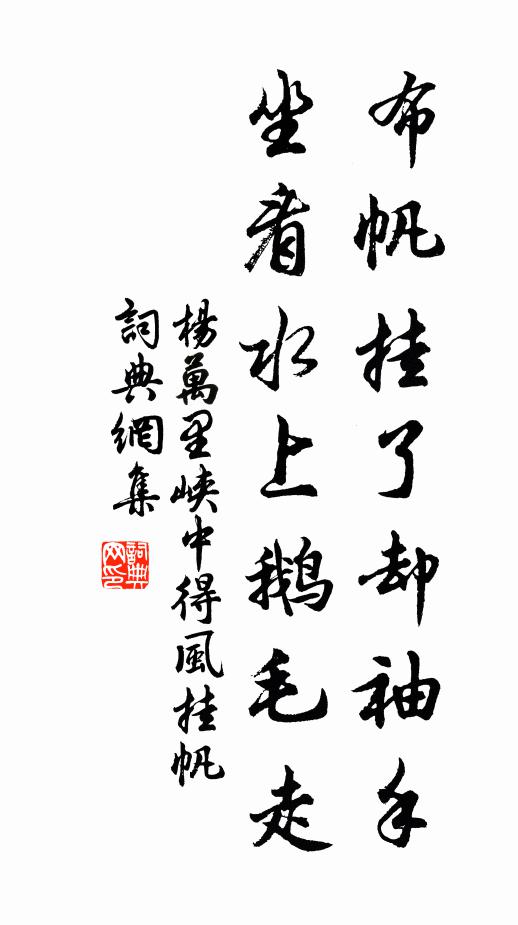 布帆挂了却袖手
坐看水上鹅毛走
楊萬里峽中得風挂帆
詞典網集
詞典网印